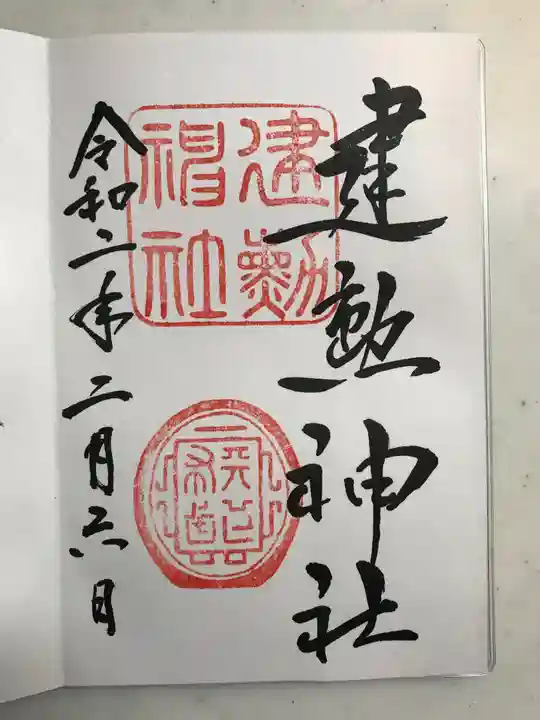 建勲神社
建勲
神社
天下布武
令和二年二月六日